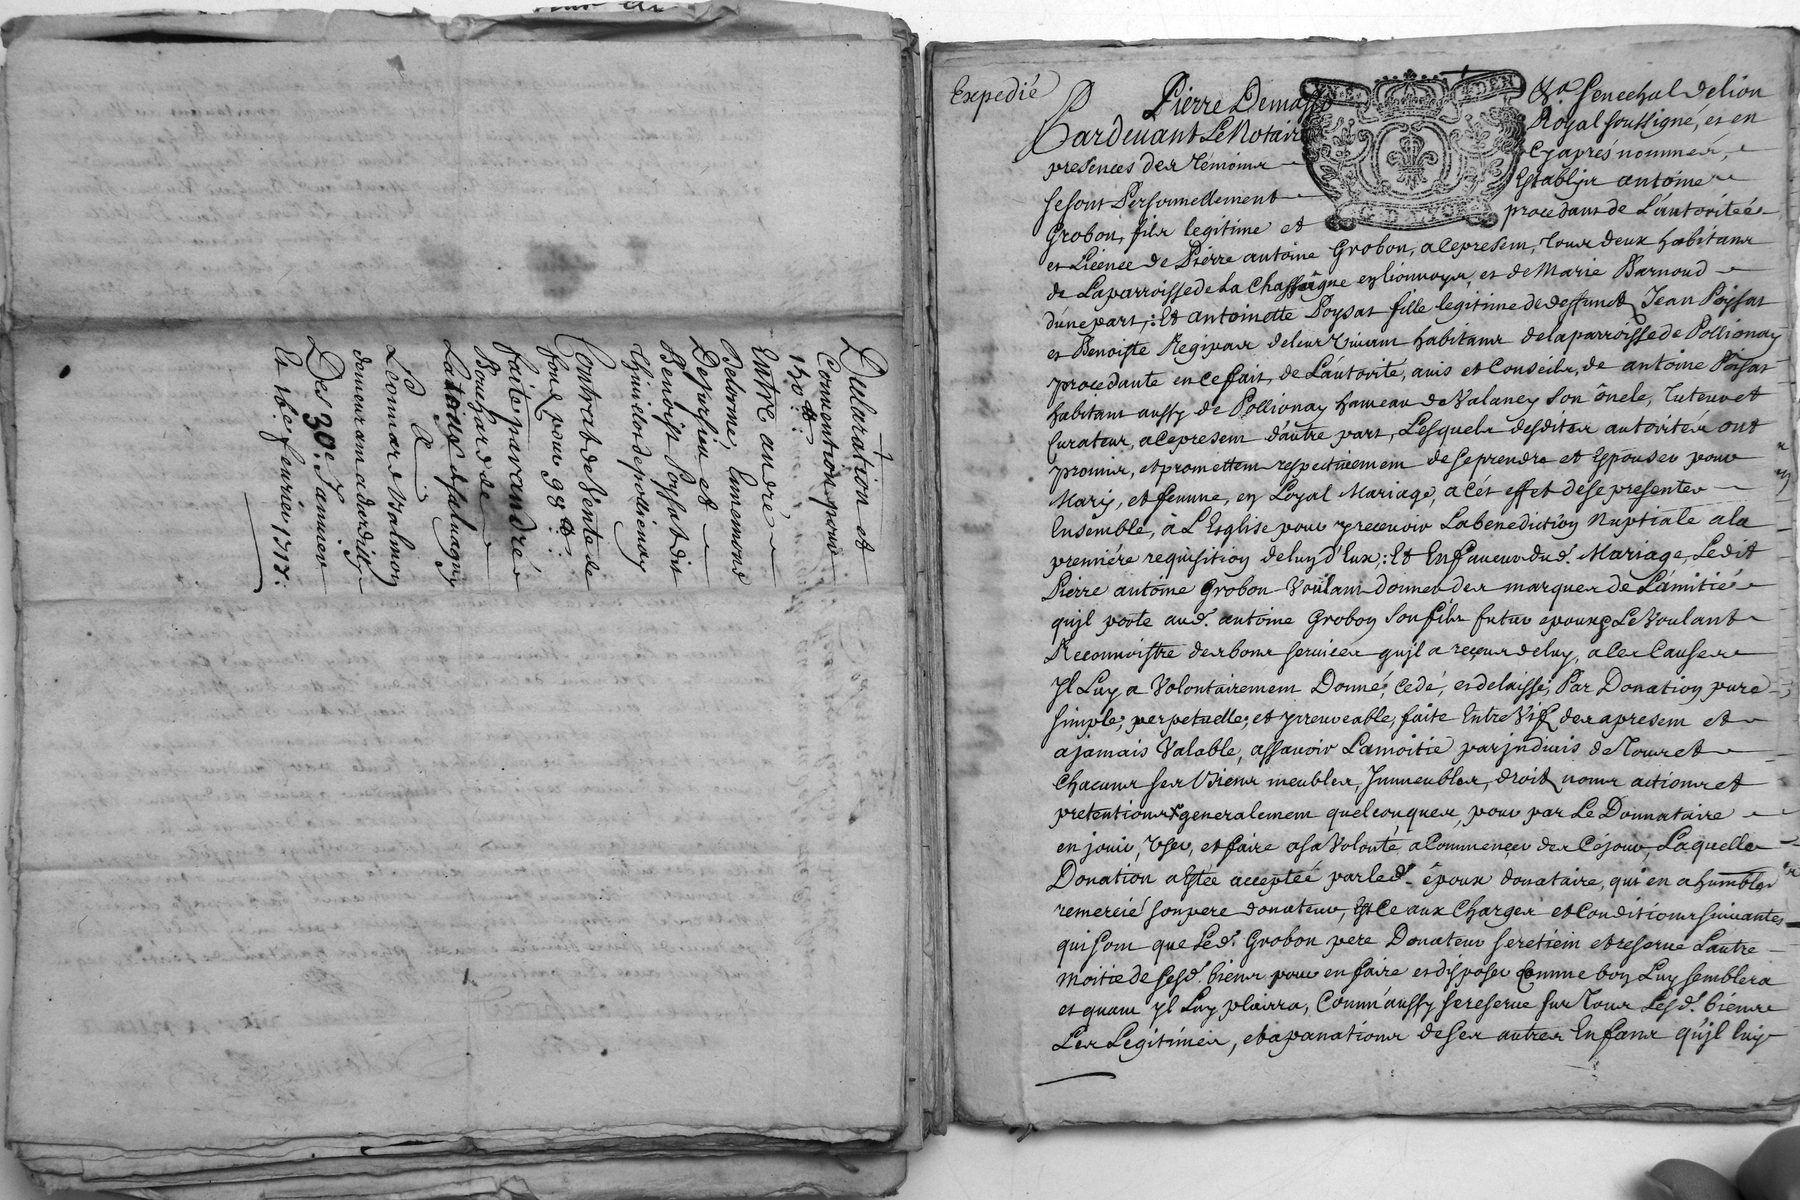 Declaration et
Convention pour
150 ₶
Entre andré
Delorme, Ennemond
Depuisieu et
Benoist Poysat dit
Thivillor de pollienay
Contrat de Vente de
fond pour 98 ₶
faite par andré
Bouchard de
Latour de saluagny
a
Leonnard Valmon
demeurant a dardilly
Des 30e. Janvier
Et 16e. feuvrier 1717.
Expedié
Pierre Demasso Sénéchal de lion
Pardeuant Le Notaire Royal soussigné, et en
presences des témoins cy aprés nommés,
se sont Personnellement Establys antoine
Grobon, fils legitime et procedant de L'autoriteé
et Licence de Pierre antoine Grobon, a ce present, tous deux habitans
de La parroisse de La Chassaigne en lionnoys, et de Marie Barnoud
d'une part ; Et antoinette Poysat fille legitime de deffunct Jean Poysat
et Benoiste Regipas de leur vivant habitans de la parroisse de Pollionay
procedante en ce fait, de L'autorité, avis et Conseils, de antoine Poysat
habitant aussy de Pollionay hameau de Valaney son oncle, tuteur et
Curateur, a ce present d'autre part, Lesquels desdites autorités ont
promis, et promettent respectivement de se prendre et Espouser pour
Mary, et femme, en Loyal Mariage, a cét effet de se presenter
Ensemble, à L'Esglise pour y recevoir La benediction Nuptiale a la
premiére requisition de l'un d'Eux ; Et En faueur dud. Mariage, Ledit
Pierre antoine Grobon Voulant donner des marques de L'amitié
qu'jl porte aud. antoine Grobon son fils futur epoux, et Le Voulant
Reconnoistre des bons services qu'jl a reçeus de luy, a Ces Causes
Jl Luy a Volontairement Donné, cedé, et delaissé, Par Donation pure
simple, perpetuelle, et jrreuocable, faite Entre Vifs des a present et
a jamais Valable, assavoir La moitié par jndivis de Tous et
Chacuns ses Biens meubles, Jmmeubles, droits noms actions et
pretentions generalement quelconques, pour par Le Donnataire
en jouir, Vser, et faire a sa Volonté, a Commencer des Cejour, Laquelle
Donation a Estée acceptéé par led. époux donataire, qui en a humblem.t
remercié son pere donateur, Et Ce aux Charges et Conditions suivantes
qui sont que Led. Grobon pere Donateur se retient et reserve L'autre
Moitié de ses d. biens pour en faire et disposer Comme bon Luy semblera
et quant Jl Luy plairra, Comm'aussy se reserve sur Tous Les d. biens
Les Legitimes, et apanations de ses autres Enfans qu'jl luy